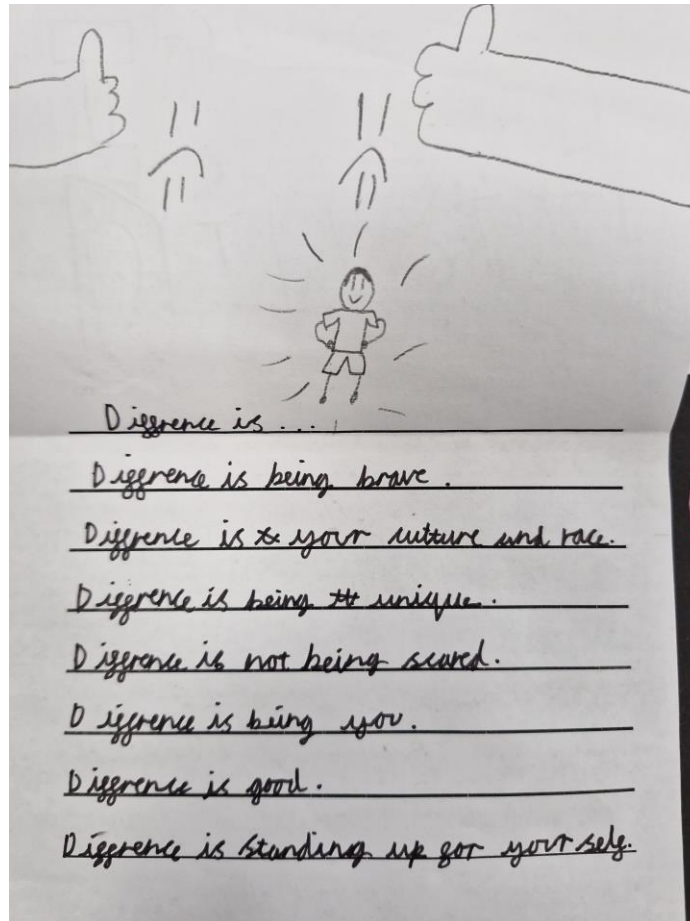 Diffrence is ...
Diffrence is being brave.
Diffrence is your culture and race.
Diffrence is being unique.
Diffrence is not being scared.
Diffrence is being you.
Diffrence is good.
Diffrence is standing up for your self.